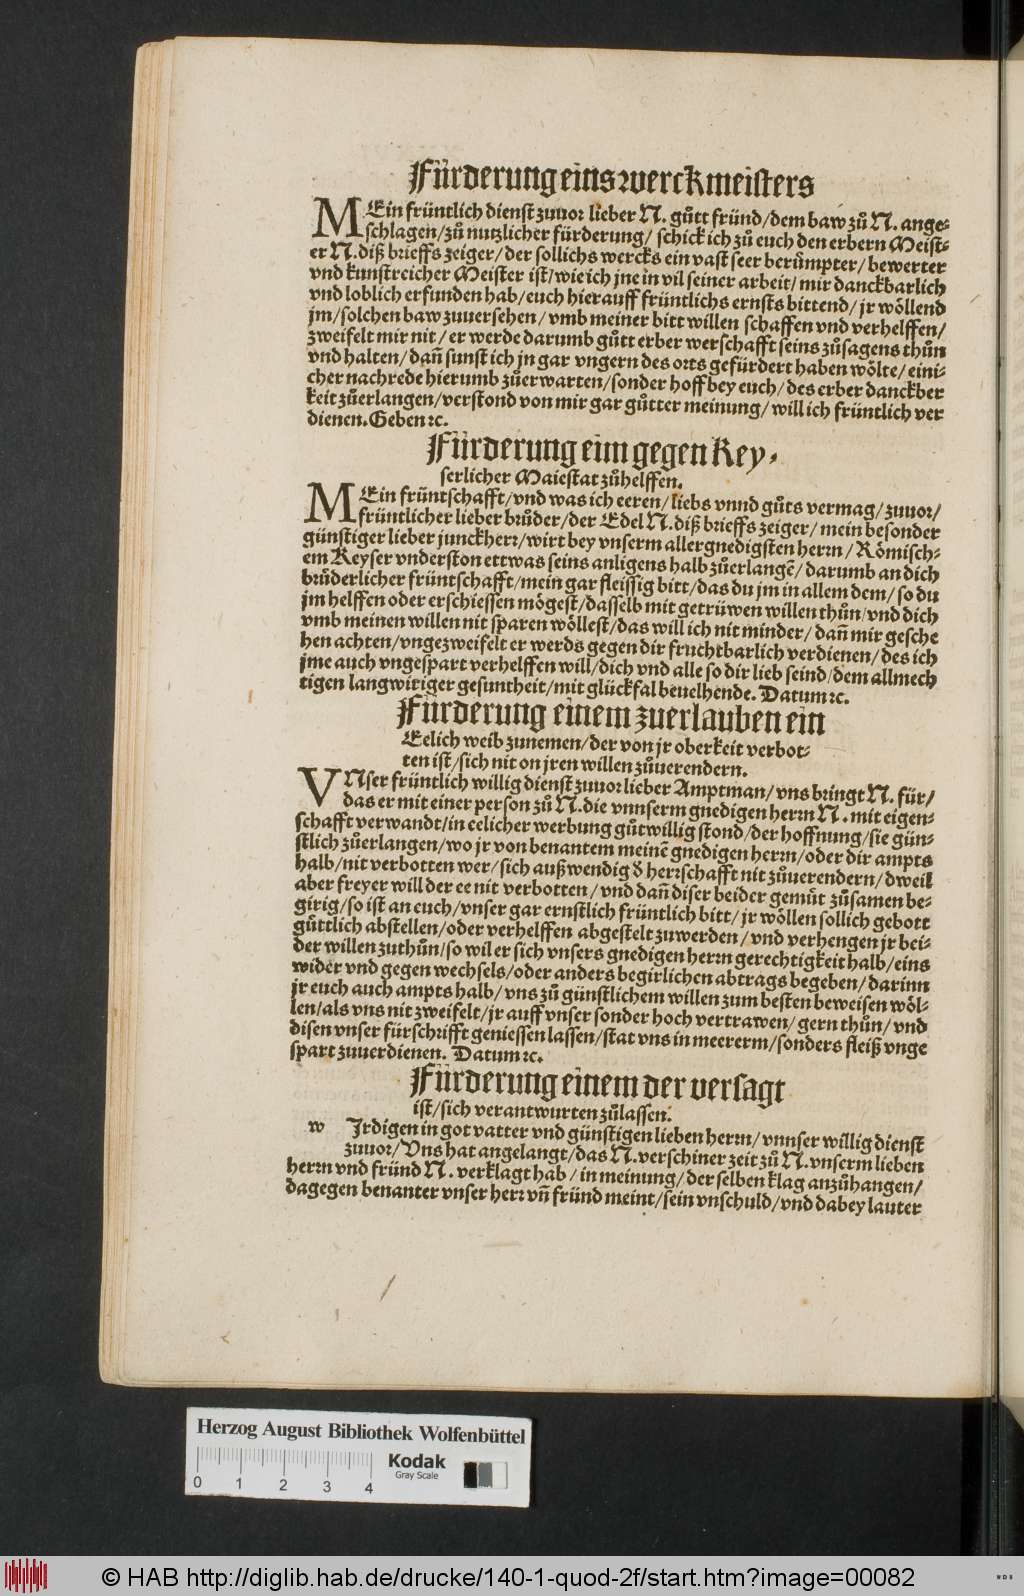 Fürderung eins werckmeisters
MEin früntlich dienst zuuor lieber N. gůtt fründ/dem baw zů N. ange-
schlagen/zů nutzlicher fürderung/ schick ich zů euch den erbern Meist-
er N. diß brieffs zeiger/der sollichs wercks ein vast seer berůmpter/bewerter
vnd kunstreicher Meister ist/wie ich jne in vil seiner arbeit/ mir danckbarlich
vnd loblich erfunden hab/euch hierauff früntlichs ernsts bittend/jr wöllend
jm/solchen baw zuuersehen/vmb meiner bitt willen schaffen vnd verhelffen/
zweifelt mir nit/er werde darumb gůtt erber werschafft seins zůsagens thůn
vnd halten/dañ sunst ich jn gar vngern des orts gefürdert haben wölte/eini-
cher nachrede hierumb zůerwarten/sonder hoff bey euch/des erber danckber
keit zůerlangen/verstond von mir gar gůtter meinung/will ich früntlich ver
dienen. Geben ꝛc.
Fürderung eim gegen Key-
serlicher Maiestat zůhelffen.
MEin früntschafft/vnd was ich eeren/liebs vnnd gůts vermag/zuuor/
früntlicher lieber brůder/der Edel N. diß brieffs zeiger/mein besonder
günstiger lieber junckherr/wirt bey vnserm allergnedigsten herrn/Römisch-
em Keyser vnderston ettwas seins anligens halb zůerlangẽ/darumb an dich
brůderlicher früntschafft/mein gar fleissig bitt/das du jm in allem dem/so du
jm helffen oder erschiessen mögest/dasselb mit getrüwen willen thůn/vnd dich
vmb meinen willen nit sparen wöllest/das will ich nit minder/dañ mir gesche
hen achten/vngezweifelt er werds gegen dir fruchtbarlich verdienen/des ich
jme auch vngespart verhelffen will/dich vnd alle so dir lieb seind/dem allmech
tigen langwiriger gesuntheit/mit glückfal beuelhende. Datum ꝛc.
Fürderung einem zuerlauben ein
Eelich weib zunemen/der von jr oberkeit verbot-
ten ist/sich nit on jren willen zůuerendern.
VNser früntlich willig dienst zuuor lieber Amptman/vns bringt N. für/
das er mit einer person zů N. die vnnserm gnedigen herrn N. mit eigen-
schafft verwandt/in eelicher werbung gůtwillig stond/der hoffnung/sie gün-
stlich zůerlangen/wo jr von benantem meinẽ gnedigen herrn/oder dir ampts
halb/nit verbotten wer/sich außwendig ð herrschafft nit zůuerendern/dweil
aber freyer will der ee nit verbotten/vnd dañ diser beider gemůt zůsamen be-
girig/so ist an euch/vnser gar ernstlich früntlich bitt/jr wöllen sollich gebott
gůttlich abstellen/oder verhelffen abgestelt zuwerden/vnd verhengen jr bei-
der willen zuthůn/so wil er sich vnsers gnedigen herrn gerechtigkeit halb/eins
wider vnd gegen wechsels/oder anders begirlichen abtrags begeben/darinn
jr euch auch ampts halb/vns zů günstlichem willen zum besten beweisen wöl-
len/als vns nit zweifelt/jr auff vnser sonder hoch vertrawen/gern thůn/vnd
disen vnser fürschrifft geniessen lassen/stat vns in meererm/sonders fleiß vnge
spart zuuerdienen. Datum ꝛc.
Fürderung einem der versagt
ist/sich verantwurten zůlassen.
w Irdigen in got vatter vnd günstigen lieben herrn/vnnser willig dienst
zuuor/Vns hat angelangt/das N. verschiner zeit zů N. vnserm lieben
herrn vnd fründ N. verklagt hab/in meinung/der selben klag anzůhangen/
dagegen benanter vnser herr vñ fründ meint/sein vnschuld/vnd dabey lauter
Herzog August Bibliothek Wolfenbüttel
Kodak
Gray Scale
0 1 2 3 4
© HAB http://diglib.hab.de/drucke/140-1-quod-2f/start.htm?image=00082